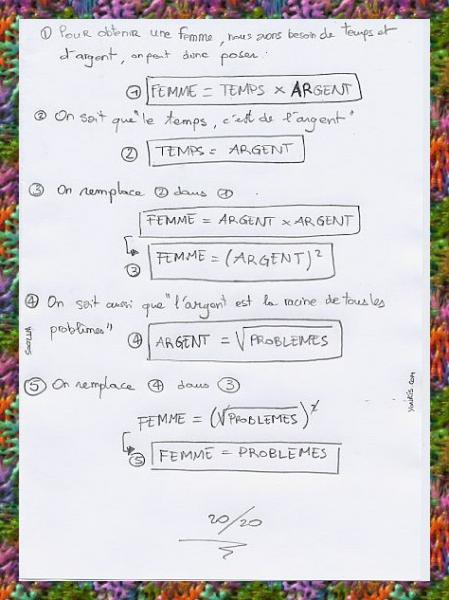 ① Pour obtenir une femme, nous avons besoin de temps et
d'argent, on peut donc poser :
① FEMME = TEMPS × ARGENT
② On sait que "le temps, c'est de l'argent"
② TEMPS = ARGENT
③ On remplace ② dans ① .
FEMME = ARGENT × ARGENT
③ FEMME = (ARGENT)²
④ On sait aussi que "l'argent est la racine de tous les
problèmes"
④ ARGENT = √PROBLEMES
⑤ On remplace ④ dans ③
FEMME = (√PROBLEMES)²
⑤ FEMME = PROBLEMES
20/20